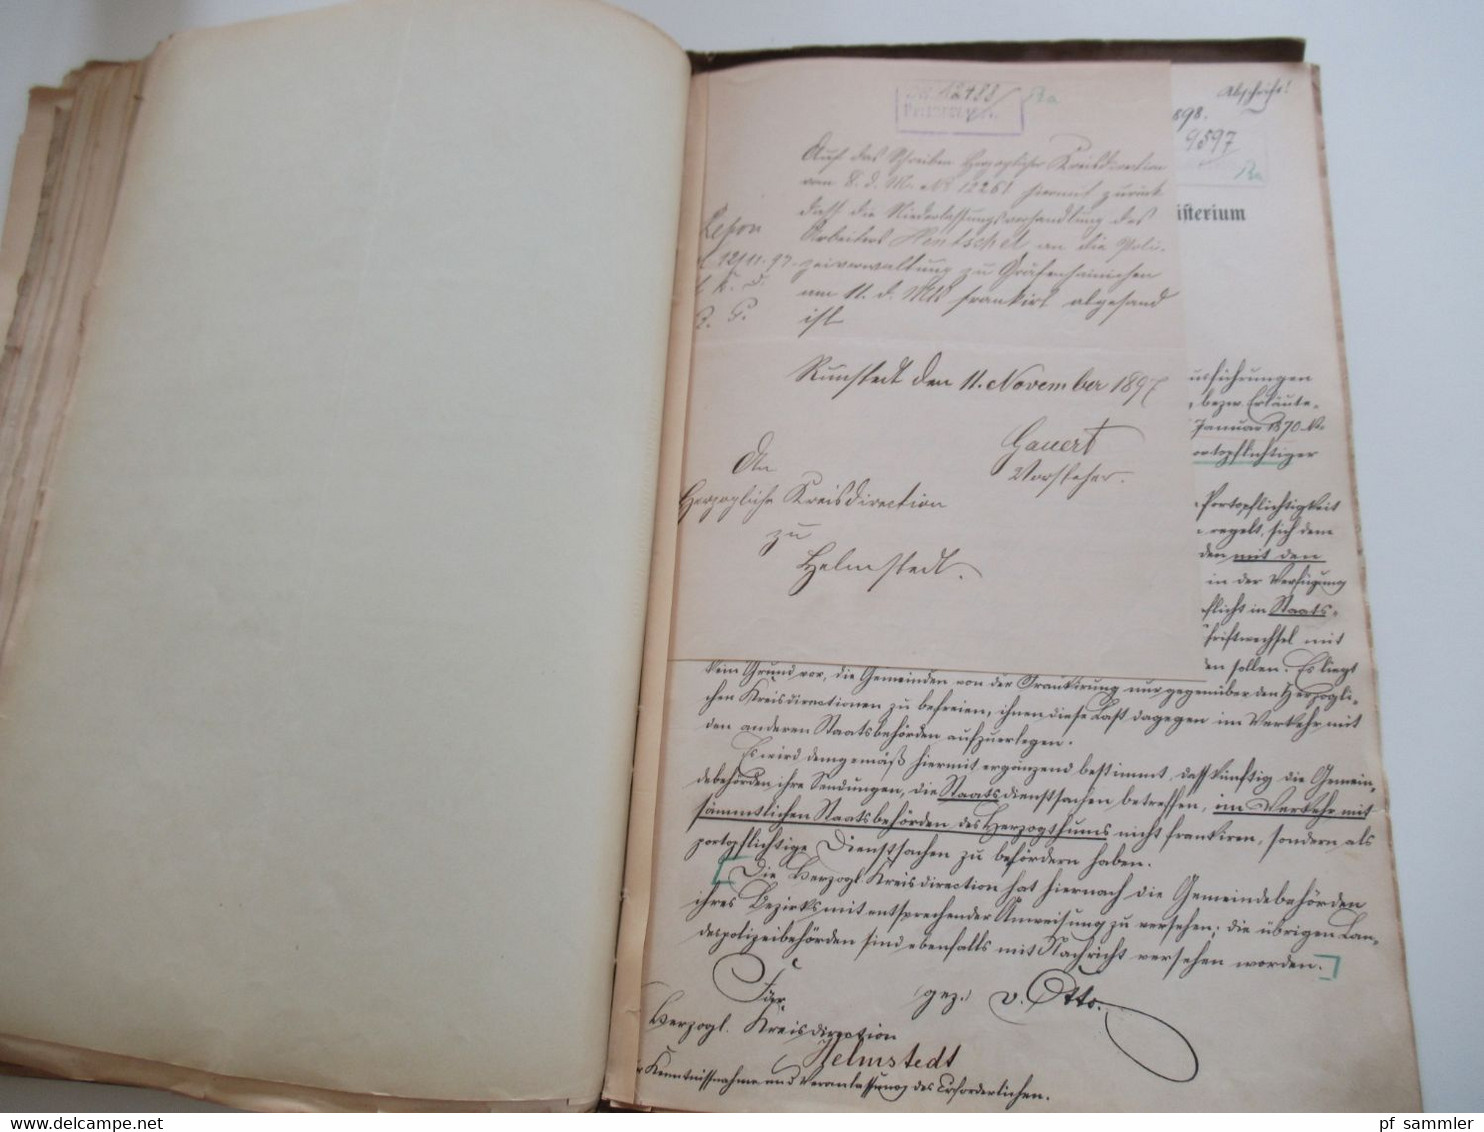 No 12488
Abschrift!
1898.
4597
Auf das Schreiben Herzoglicher Kreisdirection
vom 8. d. M. No 12261 hiermit zurück
daß die Niederlassungsverhandlung des
Arbeiters Hentschel an die Poli-
zeiverwaltung zu Gräfenhainichen
am 11. d. Mts frankirt abgesand
ist
12/11. 97.
Runstedt den 11. November 1897
Gauert
Vorsteher.
An
Herzogliche Kreisdirection
zu
Helmstedt.
isterium
usführungen
bezw. Erläute-
Januar 1870 No
ortopflichtiger
Portopflichtigkeit
regelt, sich dem
den mit den
in der Verfügung
flicht in Staats-
hriftwechsel mit
den sollen. Es liegt
kein Grund vor, die Gemeinden von der Frankirung nur gegenüber den Herzogli-
chen Kreisdirectionen zu befreien, ihnen diese Last dagegen im Verkehr mit
den anderen Staatsbehörden aufzuerlegen.
Es wird demgemäß hiermit ergänzend bestimmt, daß künftig die Gemein-
debehörden ihre Sendungen, die Staatsdienstsachen betreffen, im Verkehr mit
sämmtlichen Staatsbehörden des Herzogthums nicht frankiren, sondern als
portopflichtige Dienstsachen zu befördern haben.
Die Herzogl. Kreisdirection hat hiernach die Gemeindebehörden
ihres Bezirks mit entsprechender Anweisung zu versehen; die übrigen Lan-
despolizeibehörden sind ebenfalls mit Nachricht versehen worden.
gez. v. Otto.
Für
Herzogl. Kreisdirection
Helmstedt
Kenntnißnahme und Veranlassung des Erforderlichen.
www.delcampe.net
pf_sammler